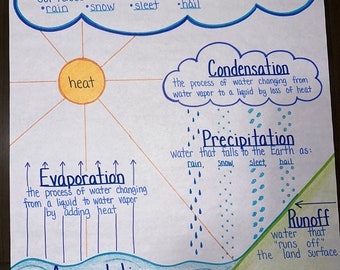 •rain •snow •sleet •hail
heat
Condensation
the process of water changing from
water vapor to a liquid by loss of heat
Precipitation
water that falls to the Earth as:
rain snow sleet hail
Evaporation
the process of water changing
from a liquid to water vapor
by adding heat
Runoff
water that
"runs off"
the land surface